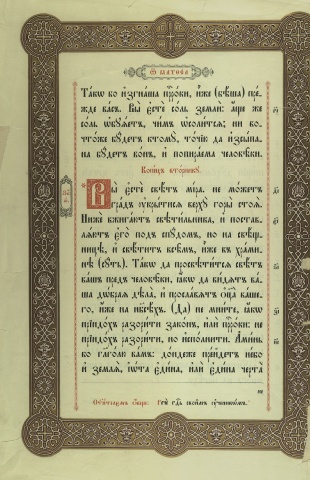 Ѿ матѳеа
Та́кѡ бо и҆згна́ша прⷪ҇ро́ки, и҆̀же (бѣ́ша) пре́-
жде ва́съ. Вы̀ є҆стѐ со́ль землѝ: а҆́ще же
со́ль ѡ҆бꙋѧ́етъ, чи́мъ ѡ҆соли́тсѧ; ни во
что́же бꙋ́детъ ктомꙋ̀, то́чїю да и҆зсы́па-
на бꙋ́детъ во́нъ, и҆ попира́ема человѣ́ки.
Коне́цъ вто́рникꙋ.
Вы̀ є҆стѐ свѣ́тъ мі́ра. не мо́жетъ
гра́дъ ᲂу҆кры́тисѧ верхꙋ̀ горы̀ стоѧ̀.
Нижѐ вжига́ютъ свѣти́льника, и҆ поста-
влѧ́ютъ є҆го̀ под̾ спꙋ́домъ, но на свѣ́щ-
ницѣ, и҆ свѣ́титъ всѣ̑мъ, и҆̀же въ хра́ми-
нѣ (сꙋ́ть). Та́кѡ да просвѣти́тсѧ свѣ́тъ
ва́шъ пред̾ человѣ́ки, ꙗ҆́кѡ да ви́дѧтъ ва̑-
ша дѡ́браѧ дѣла̀, и҆ просла́вѧтъ ѻ҆ц҃а̀ ва́ше-
го, и҆́же на нб҃сѣ́хъ. (Да) не мни́те, ꙗ҆́кѡ
прїидо́хъ разори́ти зако́нъ, и҆лѝ прⷪ҇ро́ки: не
прїидо́хъ разори́ти, но и҆спо́лнити. А҆ми́нь
бо гл҃го́лю ва́мъ: до́ндеже пре́йдетъ не́бо
и҆ землѧ̀, і҆ѡ́та є҆ди́на, и҆лѝ є҆ди́на черта̀